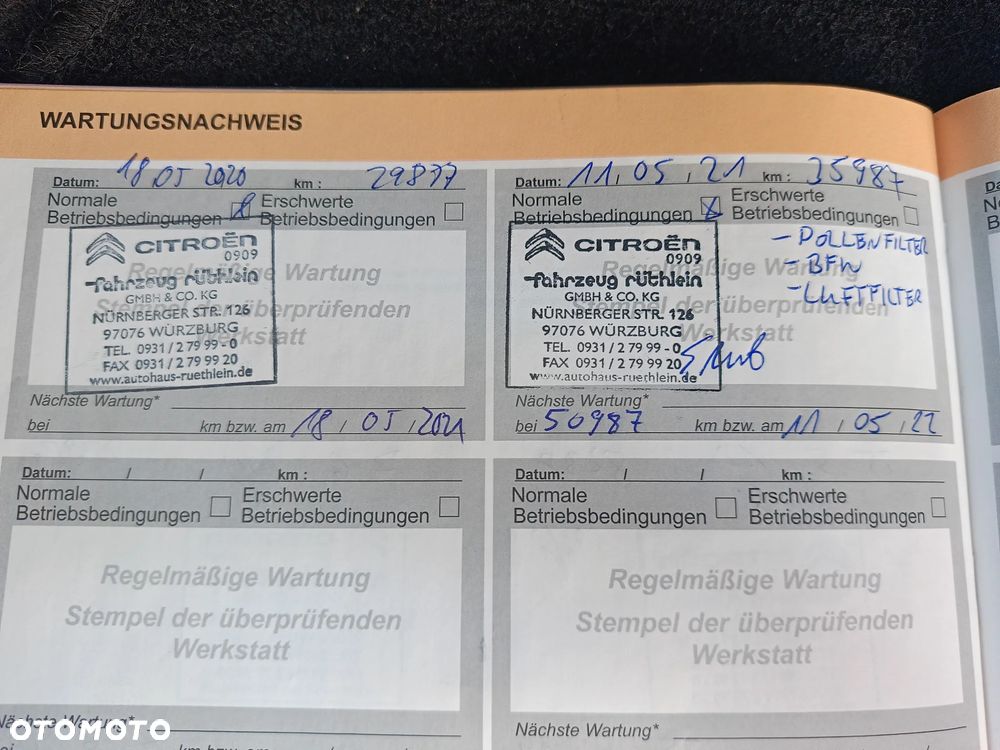 WARTUNGSNACHWEIS
Datum: 18 05 2020 km: 29837
Normale Betriebsbedingungen Erschwerte Betriebsbedingungen
Regelmäßige Wartung
Stempel der überprüfenden
Werkstatt
CITROËN
0909
fahrzeug rüthlein
GMBH & CO. KG
NÜRNBERGER STR. 126
97076 WÜRZBURG
TEL. 0931/2 79 99-0
FAX 0931/2 79 99 20
www.autohaus-ruethlein.de
Nächste Wartung*
bei km bzw. am 18 / 05 / 2021
Datum: 11, 05, 21 km: 35987
Normale Betriebsbedingungen Erschwerte Betriebsbedingungen
Regelmäßige Wartung
Stempel der überprüfenden
Werkstatt
CITROËN
0909
fahrzeug rüthlein
GMBH & CO. KG
NÜRNBERGER STR. 126
97076 WÜRZBURG
TEL. 0931/2 79 99-0
FAX 0931/2 79 99 20
www.autohaus-ruethlein.de
- POLLENFILTER
- BFW
- LUFTFILTER
Nächste Wartung*
bei 50987 km bzw. am 11 / 05 / 22
Datum: / / km:
Normale Betriebsbedingungen Erschwerte Betriebsbedingungen
Regelmäßige Wartung
Stempel der überprüfenden
Werkstatt
Nächste Wartung*
Datum: / / km:
Normale Betriebsbedingungen Erschwerte Betriebsbedingungen
Regelmäßige Wartung
Stempel der überprüfenden
Werkstatt
Nächste Wartung*
OTOMOTO